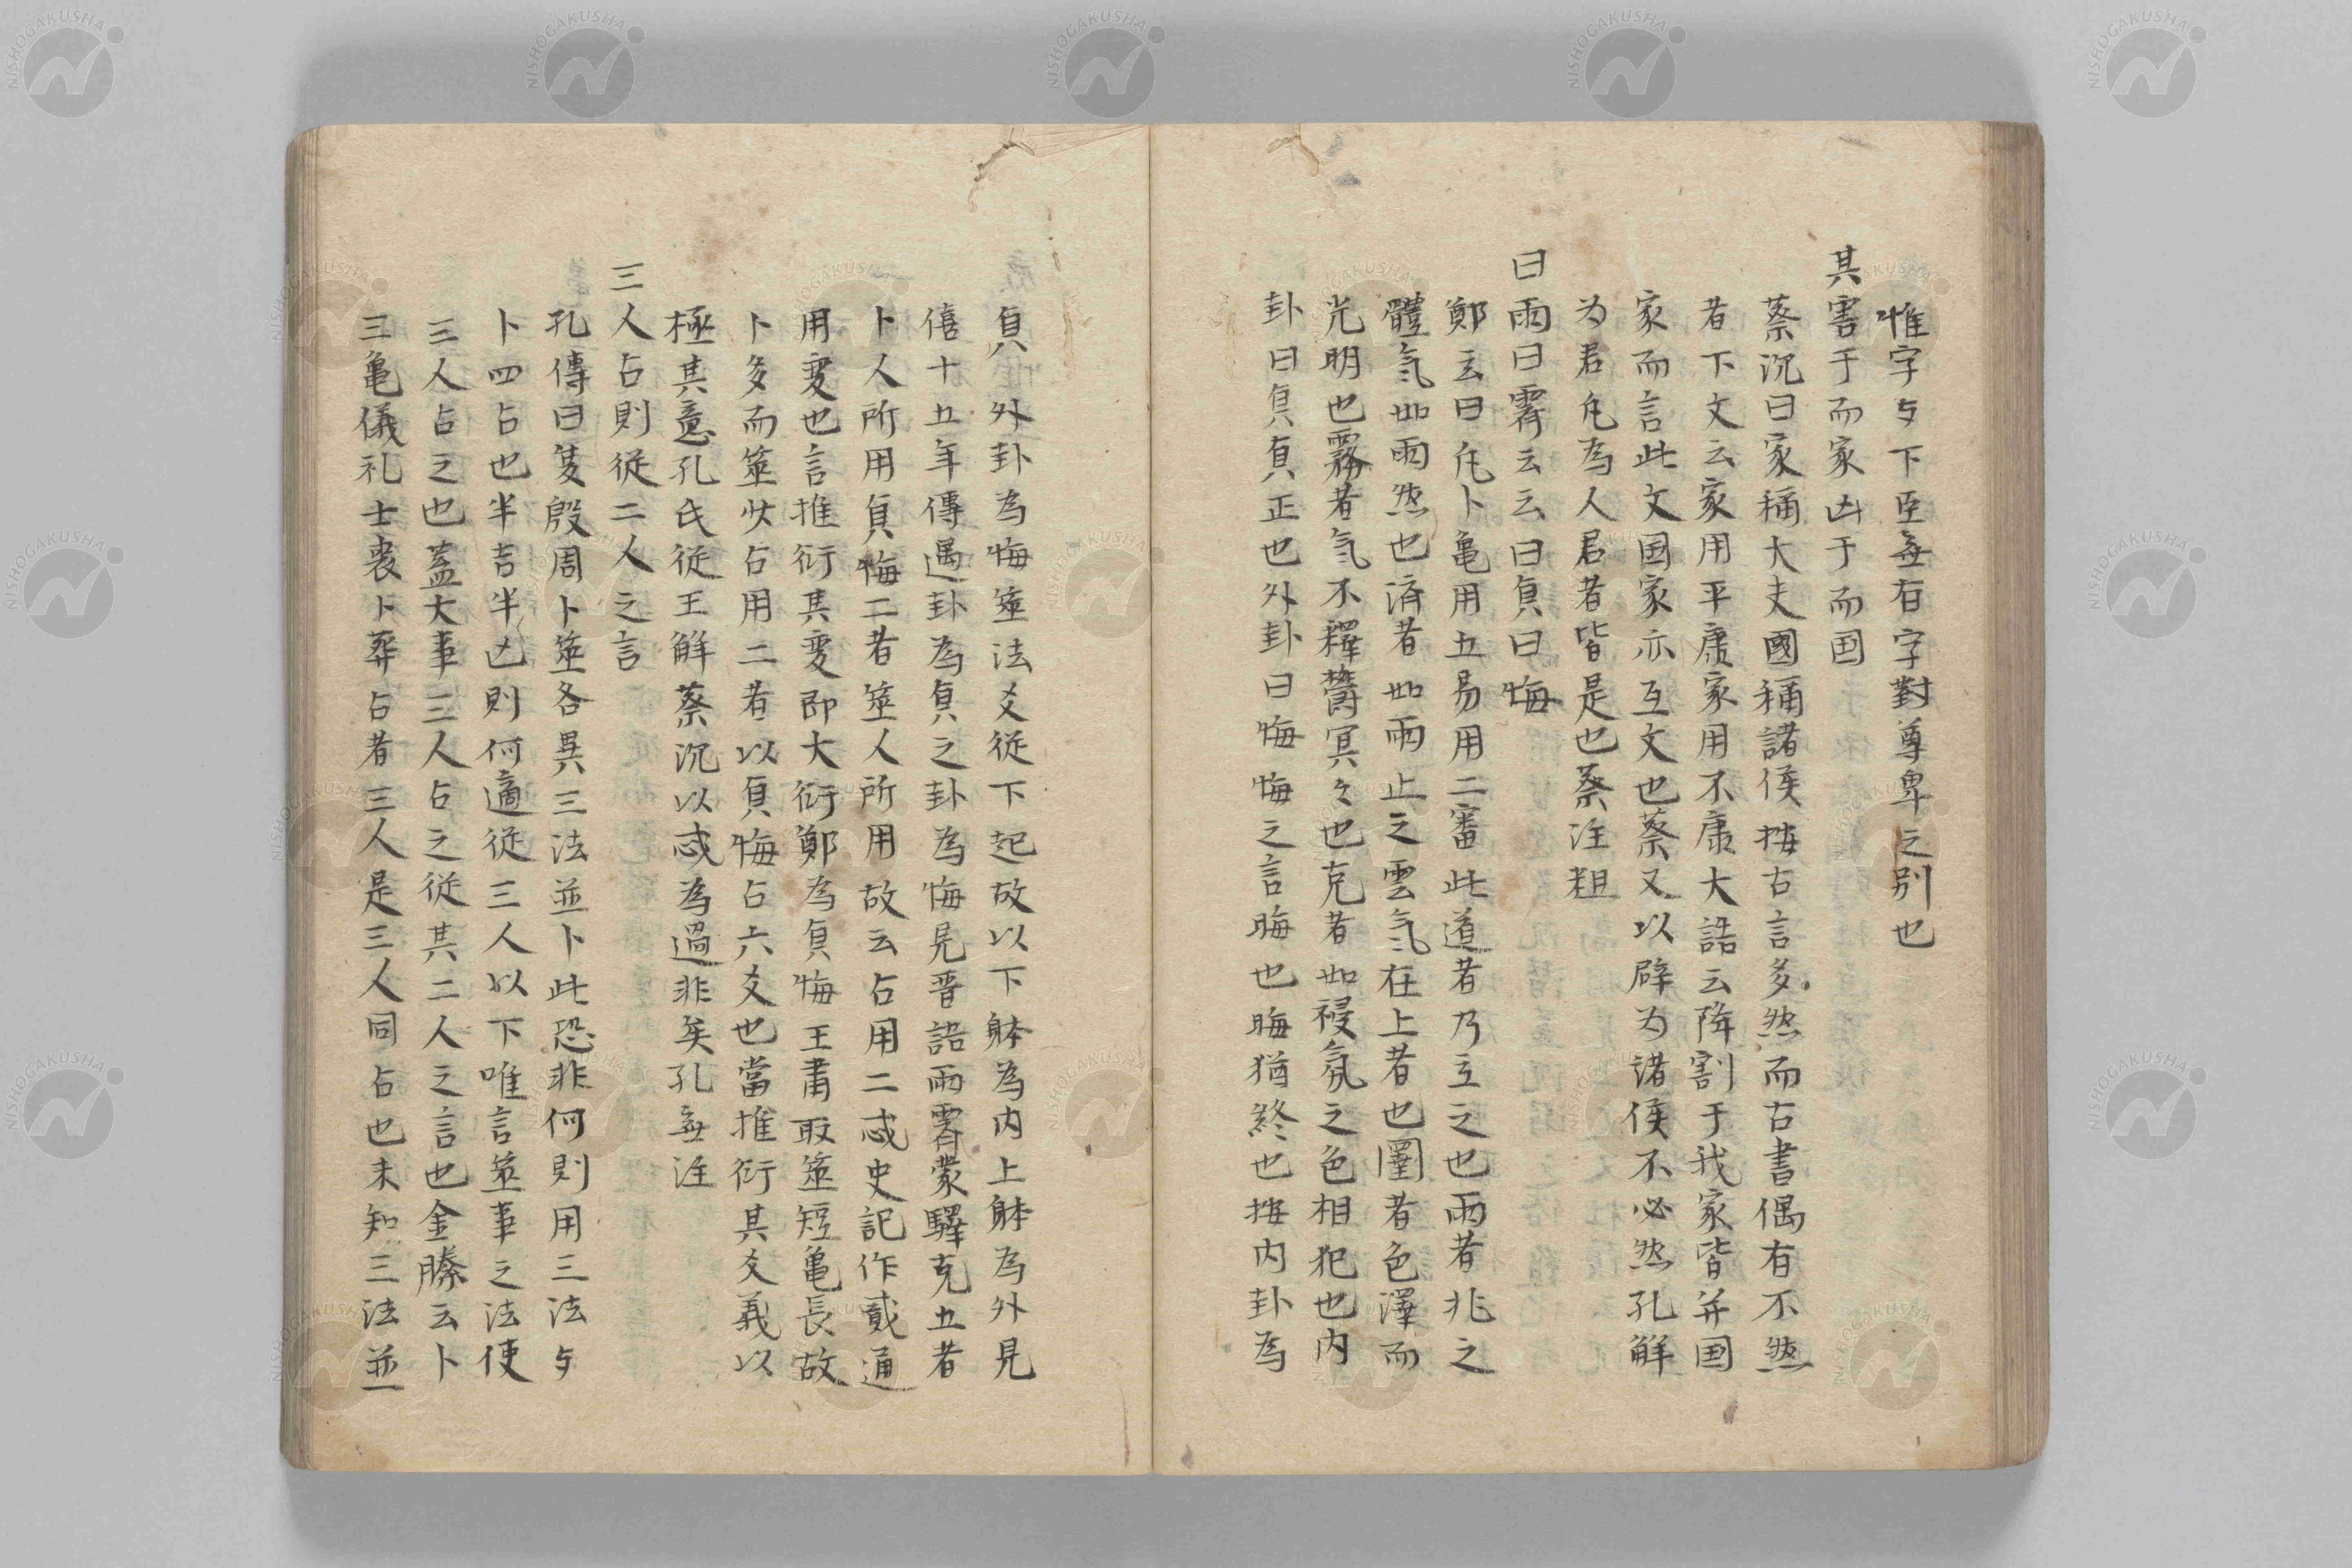 惟字与下臣無有字對尊卑之别也
其害于而家凶于而国
蔡沉曰家稱大夫國稱諸侯按古言多然而古書偶有不然
者下文云家用平康家用不康大誥云降割于我家皆并国
家而言此文国家亦互文也蔡又以辟为諸侯不必然孔解
为君凡為人君者皆是也蔡注粗
曰雨曰霽云云曰貞曰悔
鄭云曰凡卜亀用五易用二審此道者乃立之也雨者兆之
體气如雨然也済者如雨止之雲气在上者也圛者色澤而
光明也霧者气不釋鬱冥々也克者如祲氛之色相犯也内
卦曰貞貞正也外卦曰悔悔之言晦也晦猶終也按内卦為
貞外卦為悔筮法爻従下起故以下躰為内上躰為外見
僖十五年傳遇卦為貞之卦為悔見晋語雨霽蒙驛克五者
卜人所用貞悔二者筮人所用故云占用二忒史記作貳通
用変也言推衍其変即大衍鄭為貞悔王肅取筮短亀長故
卜多而筮少占用二者以貞悔占六爻也當推衍其爻義以
極其意孔氏従王解蔡沉以忒為過非矣孔無注
三人占則従二人之言
孔傳曰夏殷周卜筮各異三法並卜此恐非何則用三法与
卜四占也半吉半凶則何適従三人以下唯言筮事之法使
三人占之也蓋大事三人占之従其二人之言也金縢云卜
三亀儀礼士喪卜葬占者三人是三人同占也未知三法並